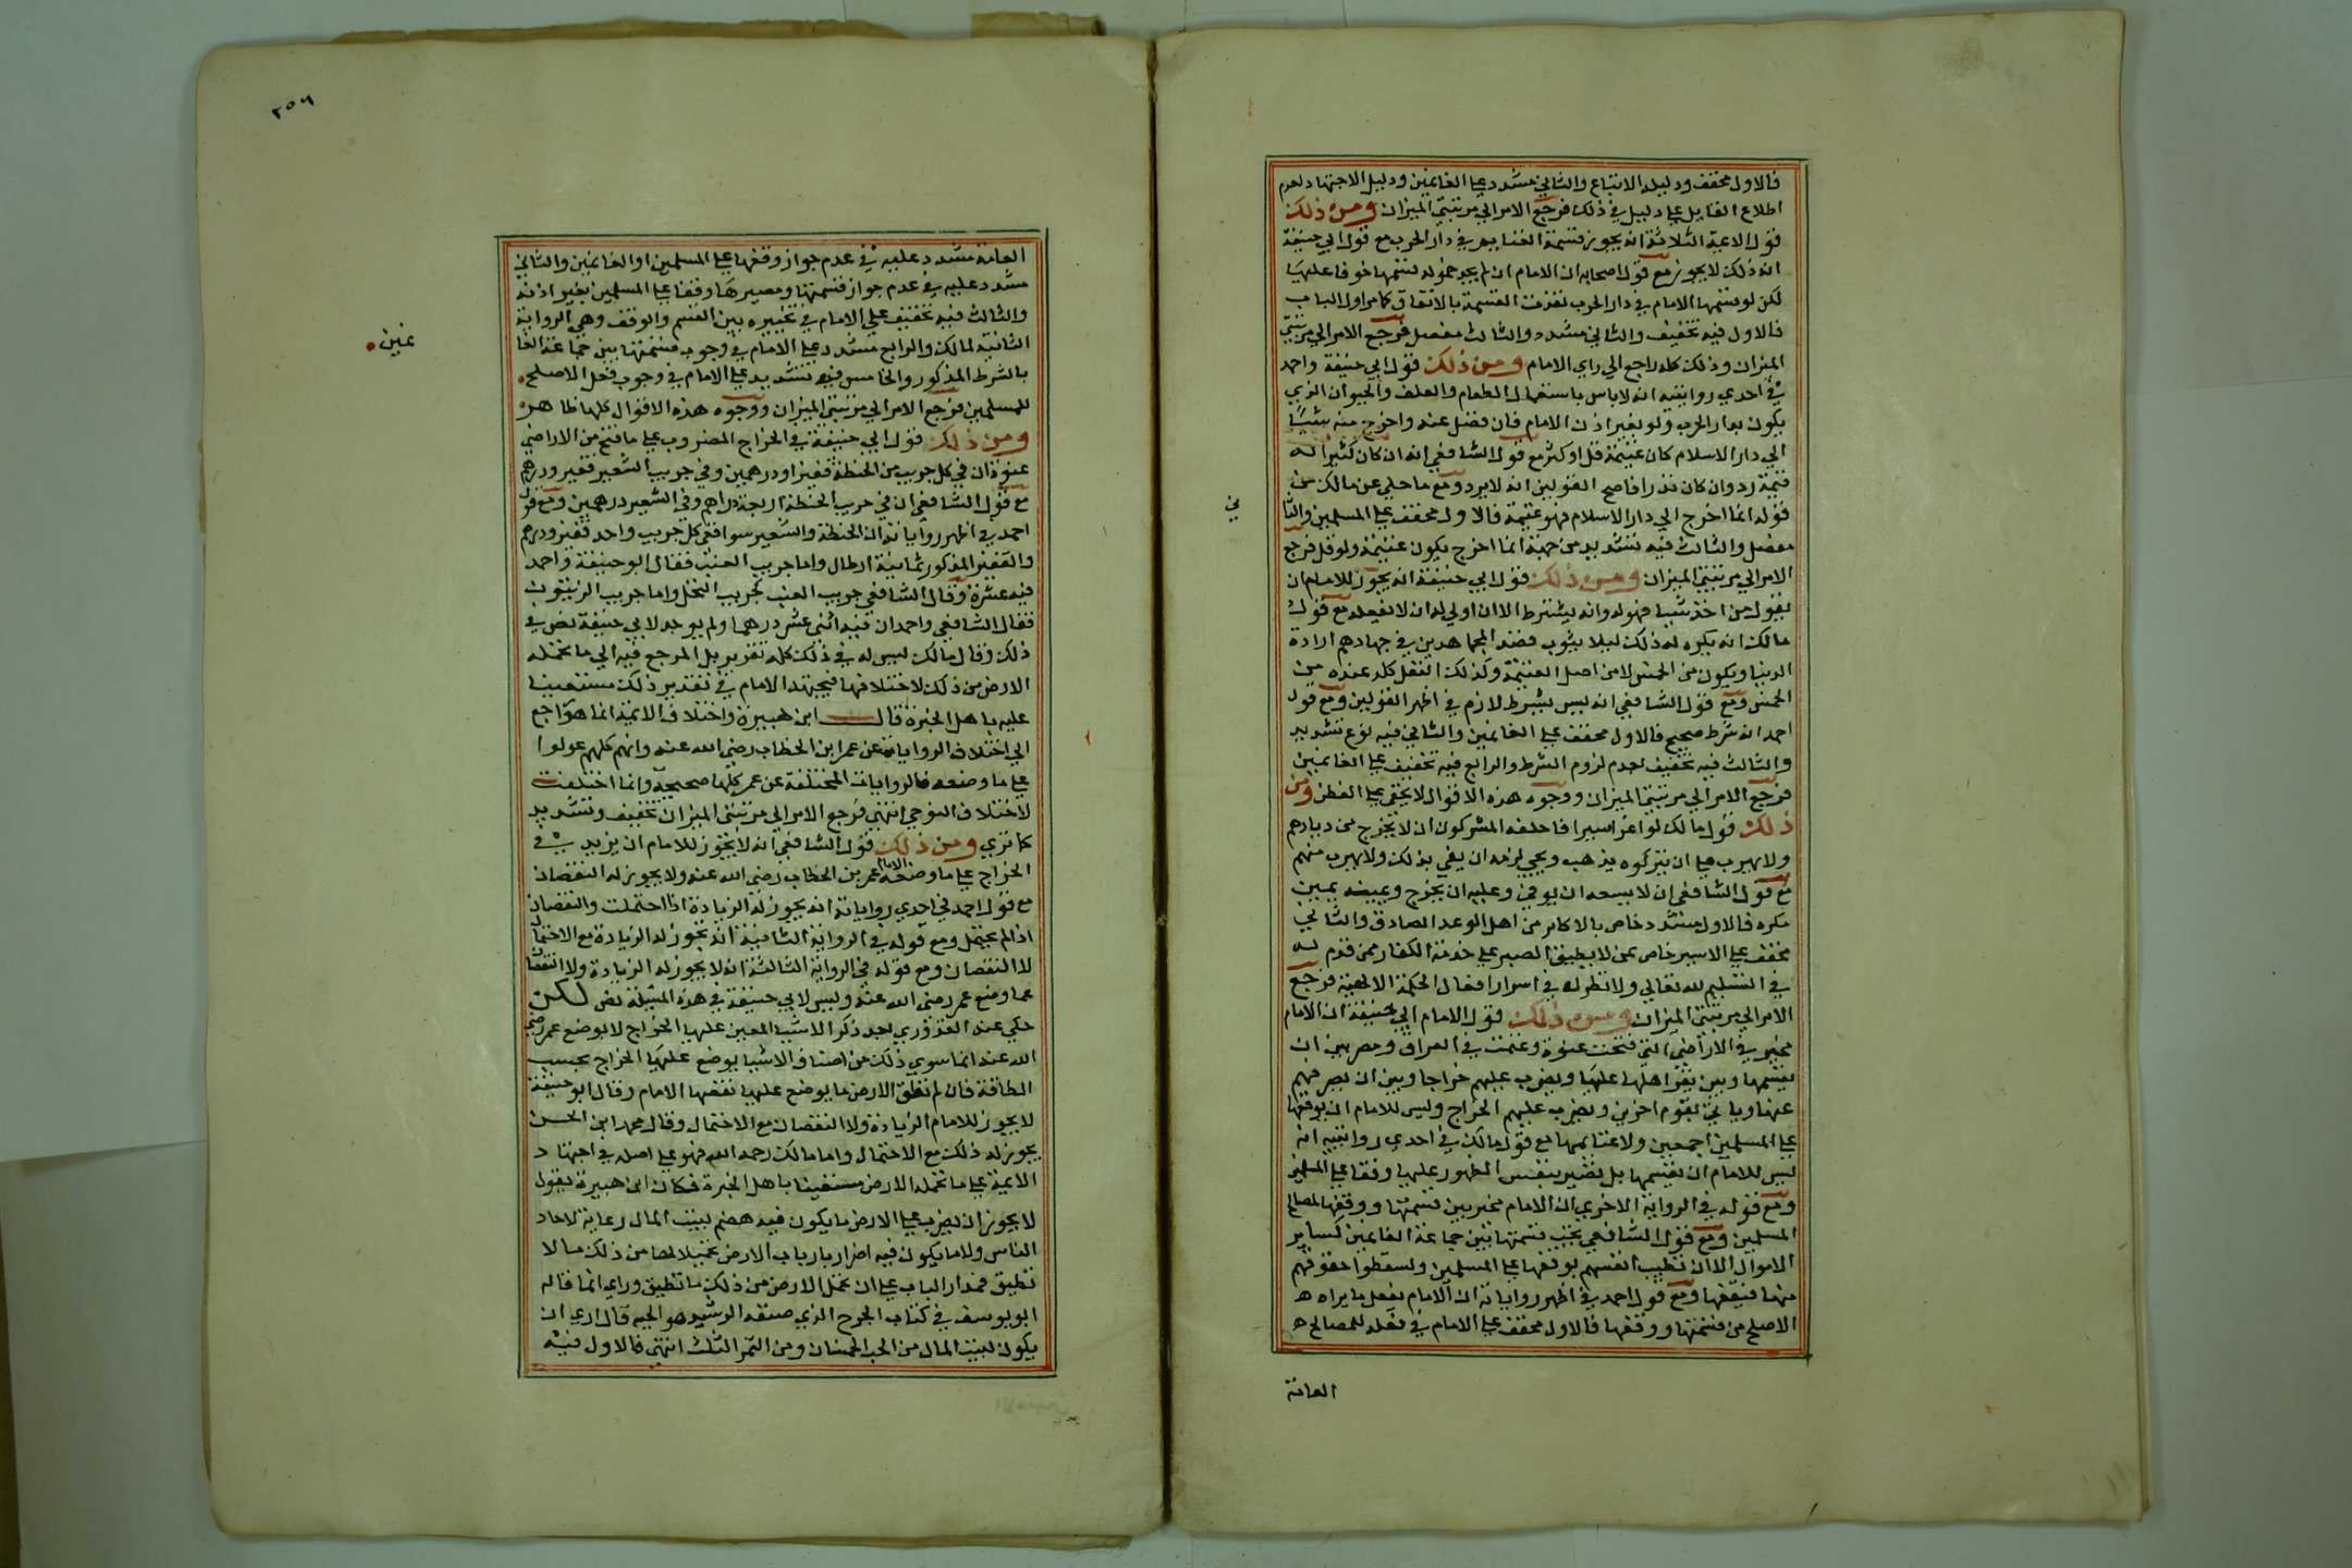 فالاول مخفف ودليله الاتباع والثاني مشدد علي الغانمين ودليل الاجتهاد لعدم
اطلاع القايل علي دليل في ذلك فرجع الامر الي مرتبتي الميزان ومن ذلك
قول الايمة الثلاثة انه يجوز قسمة الغنايم في دار الحرب مع قول ابي حنيفة
ان ذلك لا يجوز مع قول اصحابه ان الامام ان لم يجد حمولة قسمها خوفا عليها
لكن لو قسمها الامام في دار الحرب نفذت القسمة بالاتفاق كما مر اول الباب
فالاول فيه تخفيف والثاني مشدد والثالث مفصل فرجع الامر الي مرتبتي
الميزان وذلك كله راجع الي راي الامام ومن ذلك قول ابي حنيفة واحمد
في احدي روايتيه انه لا باس باستعمال الطعام والعلف والحيوان الذي
يكون بدار الحرب ولو بغير اذن الامام فان فضل عنه واخرج منه شيئا
الي دار الاسلام كان غنيمة قل او كثر مع قول الشافعي انه ان كان كثيرا له
قيمة رد وان كان نذرا فاصح القولين انه لا يرد ومع ما حكي عن مالك من
قوله انما اخرج الي دار الاسلام فهو غنيمة فالاول مخفف علي المسلمين والثا
ني
مفصل والثالث فيه تشديد من جهة انما اخرج يكون غنيمة ولو قل فرجع
الامر الي مرتبتي الميزان ومن ذلك قول ابي حنيفة انه يجوز للامام ان
يقول من اخذ شيا فهو له وانه يشترط الا ان اولي له ان لا يفعله مع قول
مالك انه يكره له ذلك ليلا يشوب قصد المجاهدين في جهادهم ارادة
الدنيا ويكون من الخمس لا من اصل الغنيمة وكذلك النفل كله عنده من
الخمس ومع قول الشافعي انه ليس بشرط لازم في اظهر القولين ومع قول
احمد انه شرط صحيح فالاول مخفف علي الغانمين والثاني فيه نوع تشديد
والثالث فيه تخفيف لعدم لزوم الشرط والرابع فيه تخفيف علي الغانمين
فرجع الامر الي مرتبتي الميزان ووجوه هذه الاقوال لا يخفي علي الفطن ومن
ذلك قول مالك لو اعز اسيرا فاحلفه المشركون ان لا يخرج من ديارهم
ولا يهرب علي ان يتركوه يذهب ويجي لزمه ان يفي بذلك ولا يهرب منهم
مع قول الشافعي ان لا يسعه ان يوفي وعليه ان يخرج ويمينه يمين
مكره فالاول مشدد خاص بالاكابر من اهل الوعد الصادق والثاني
مخفف علي الاسير خاص بمن لا يطيق الصبر علي خدمة الكفار ممن قدم له
في التسليم لله تعالي ولا نظر له في اسرار افعال الحكمة الالهية فرجع
الامر الي مرتبتي الميزان ومن ذلك قول الامام ابي حنيفة ان الامام
مخير في الاراضي التي فتحت عنوة وغنمت في العراق ومصر بين ان
يقسمها وبين يقر اهلها عليها ويضرب عليهم خراجا وبين ان يصرفهم
عنها وياتي بقوم اخرين ويضرب عليهم الخراج وليس للامام ان يوقفها
علي المسلمين اجمعين ولا غنايمها مع قول مالك في احدي روايتيه انه
ليس للامام ان يقسمها بل تصير بنفس الظهور عليها وقفا علي المسلمين
ومع قوله في الرواية الاخري ان الامام مخير بين قسمتها ووقفها لمصالح
المسلمين ومع قول الشافعي يجب قسمتها بين جماعة الغانمين كساير
الاموال الا ان تطيب انفسهم بوقفها علي المسلمين ويسقطوا حقوقهم
منها فيقفها ومع قول احمد في اظهر رواياته ان الامام يفعل ما يراه
الاصلح من قسمتها ووقفها فالاول مخفف علي الامام في فعله للمصالح
العامة
٢٥٦
العامة مشدد عليه في عدم جواز وقفها علي المسلمين او الغانمين والثاني
مشدد عليه في عدم جواز قسمتها ومصيرها وقفا علي المسلمين بغير اذنه
والثالث فيه تخفيف علي الامام في تخييره بين القسم والوقف وهي الرواية
الثانية لمالك والرابع مشدد علي الامام في وجوب قسمتها بين جماعة الغا
نمين
بالشرط المذكور والخامس فيه تشديد علي الامام في وجوب فعل الاصلح
للمسلمين فرجع الامر الي مرتبتي الميزان ووجوه هذه الاقوال كلها ظاهر
ومن ذلك قول ابي حنيفة في الخراج المضروب علي ما فتح من الاراضي
عنوة ان في كل جريب من الحنطة قفيزا ودرهمين وفي جريب الشعير قفيز ودرهم
مع قول الشافعي ان في جريب الحنطة اربعة دراهم وفي الشعير درهمين ومع قول
احمد في اظهر رواياته ان الحنطة والشعير سوا ففي كل جريب واحد قفيز ودرهم
والقفيز المذكور ثمانية ارطال واما جريب العنب فقال ابو حنيفة واحمد
فيه عشرة وقال الشافعي جريب العنب كجريب النخل واما جريب الزيتون
فقال الشافعي واحمد ان فيه اثني عشر درهما ولم يوجد لابي حنيفة نص في
ذلك وقال مالك ليس له في ذلك كله تقدير بل المرجع فيه الي ما تحمله
الارض من ذلك لاختلافها فيجتهد الامام في تقدير ذلك مستعينا
عليه باهل الخبرة قال ابن هبيرة واختلاف الائمة انما هو راجع
الي اختلاف الروايات عن عمر ابن الخطاب رضي الله عنه وانهم كلهم عولوا
علي ما وضعه فالروايات المختلفة عن عمر كلها صحيحة وانما اختلفت
لاختلاف النوحي انتهي فرجع الامر الي مرتبتي الميزان تخفيف وتشديد
كما تري ومن ذلك قول الشافعي انه لا يجوز للامام ان يزيد في
الخراج علي ما وضعه الامام عمر بن الخطاب رضي الله عنه ولا يجوز له النقصان
مع قول احمد في احدي رواياته انه يجوز له الزيادة اذا احتملت والنقصان
اذا لم يحتمل ومع قوله في الرواية الثانية انه يجوز له الزيادة مع الاحتمال
لا النقصان ومع قوله في الرواية الثالثة انه لا يجوز له الزيادة ولا النقصان
عما وضع عمر رضي الله عنه وليس لابي حنيفة في هذه المسئلة نص لكن
حكي عنه القدوري بعد ذكر الاشيا المعين عليها الخراج لا بوضع عمر رضي
الله عنه انما سوي ذلك من اصناف الاشيا يوضع عليها الخراج بحسب
الطاقة فان لم تطق الارض ما يوضع عليها نقصها الامام وقال ابو حنيفة
لا يجوز للامام الزيادة ولا النقصان مع الاحتمال وقال محمد ابن الحسن
يجوز له ذلك مع الاحتمال واما مالك رحمه الله فهو علي اصله في اجتهاد
الايمة علي ما تحمله الارض مستعينا باهل الخبرة فكان ابن هبيرة يقول
لا يجوز ان يضرب علي الارض ما يكون فيه هضم لبيت المال رعاية لاحاد
الناس ولا ما يكون فيه اضرار بارباب الارض تحميلا لها من ذلك ما لا
تطيق فمدار الباب علي ان تحمل الارض من ذلك ما تطيق وراي انما قاله
ابو يوسف في كتاب الجرح الذي صنفه الرشيد هو الجيد قال اري ان
يكون لبيت المال من الحب الخمسان ومن الثمر الثلث انتهي فالاول فيه